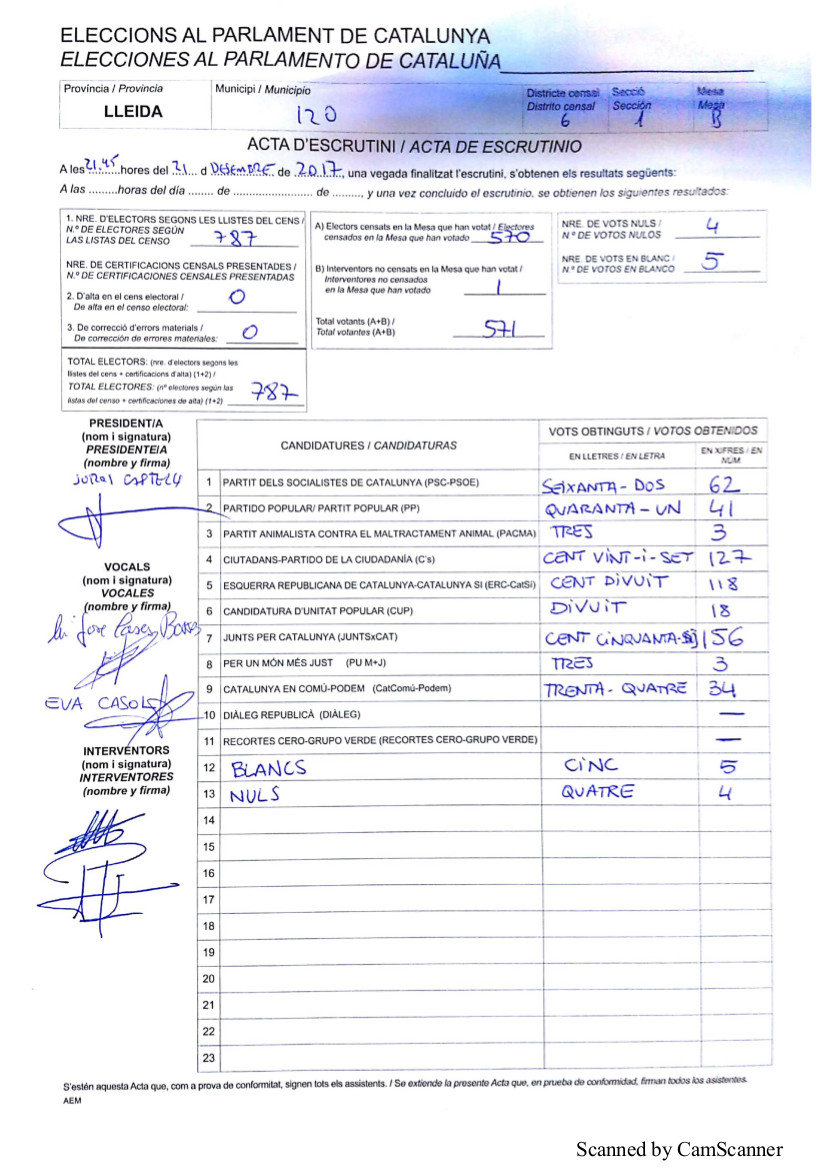 ELECCIONS AL PARLAMENT DE CATALUNYA
ELECCIONES AL PARLAMENTO DE CATALUÑA
Província / Provincia
LLEIDA
Municipi / Municipio
120
Districte censal
Distrito censal
6
Secció
Sección
1
Mesa
Mesa
B
ACTA D'ESCRUTINI / ACTA DE ESCRUTINIO
A les 21.45 hores del 21 d DESEMBRE de 2017, una vegada finalitzat l'escrutini, s'obtenen els resultats següents:
A las ......... horas del día ........ de ......................... de ........., y una vez concluido el escrutinio, se obtienen los siguientes resultados:
1. NRE. D'ELECTORS SEGONS LES LLISTES DEL CENS /
N.º DE ELECTORES SEGÚN
LAS LISTAS DEL CENSO 787
NRE. DE CERTIFICACIONS CENSALS PRESENTADES /
N.º DE CERTIFICACIONES CENSALES PRESENTADAS
2. D'alta en el cens electoral /
De alta en el censo electoral: 0
3. De correcció d'errors materials /
De corrección de errores materiales: 0
TOTAL ELECTORS: (nre. d'electors segons les
llistes del cens + certificacions d'alta) (1+2) /
TOTAL ELECTORES: (nº electores según las
listas del censo + certificaciones de alta) (1+2) 787
A) Electors censats en la Mesa que han votat / Electores
censados en la Mesa que han votado 570
B) Interventors no censats en la Mesa que han votat /
Interventores no censados
en la Mesa que han votado 1
Total votants (A+B) /
Total votantes (A+B) 571
NRE. DE VOTS NULS /
N.º DE VOTOS NULOS 4
NRE. DE VOTS EN BLANC /
N.º DE VOTOS EN BLANCO 5
PRESIDENT/A
(nom i signatura)
PRESIDENTE/A
(nombre y firma)
VOCALS
(nom i signatura)
VOCALES
(nombre y firma)
EVA CASOLS
INTERVENTORS
(nom i signatura)
INTERVENTORES
(nombre y firma)
CANDIDATURES / CANDIDATURAS
VOTS OBTINGUTS / VOTOS OBTENIDOS
EN LLETRES / EN LETRA
EN XIFRES / EN NÚM.
1 PARTIT DELS SOCIALISTES DE CATALUNYA (PSC-PSOE) SEIXANTA-DOS 62
2 PARTIDO POPULAR/ PARTIT POPULAR (PP) QUARANTA-UN 41
3 PARTIT ANIMALISTA CONTRA EL MALTRACTAMENT ANIMAL (PACMA) TRES 3
4 CIUTADANS-PARTIDO DE LA CIUDADANÍA (C's) CENT VINT-I-SET 127
5 ESQUERRA REPUBLICANA DE CATALUNYA-CATALUNYA SI (ERC-CatSí) CENT DIVUIT 118
6 CANDIDATURA D'UNITAT POPULAR (CUP) DIVUIT 18
7 JUNTS PER CATALUNYA (JUNTSxCAT) CENT CINQUANTA- 156
8 PER UN MÓN MÉS JUST (PU M+J) TRES 3
9 CATALUNYA EN COMÚ-PODEM (CatComú-Podem) TRENTA-QUATRE 34
10 DIÀLEG REPUBLICÀ (DIÀLEG) —
11 RECORTES CERO-GRUPO VERDE (RECORTES CERO-GRUPO VERDE) —
12 BLANCS CINC 5
13 NULS QUATRE 4
14
15
16
17
18
19
20
21
22
23
S'estén aquesta Acta que, com a prova de conformitat, signen tots els assistents. / Se extiende la presente Acta que, en prueba de conformidad, firman todos los asistentes.
AEM
Scanned by CamScanner